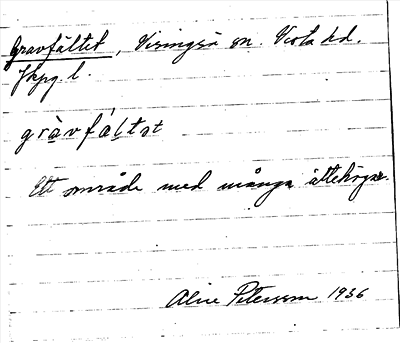 Gravfältet, Visingsö sn. Vista hd.
Jkpg l.
gràvfáltət
Ett område med många ättehögar.
Alice Petersson 1936